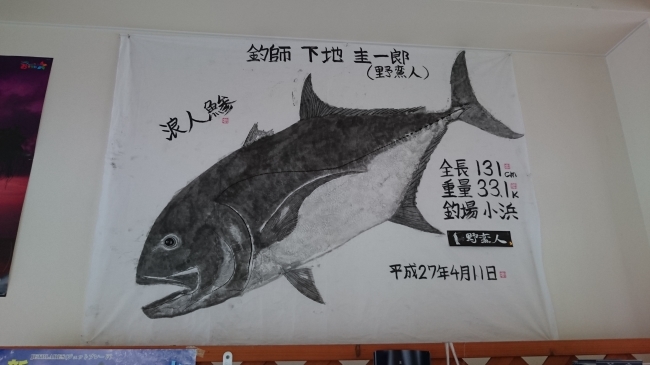 釣師 下地 圭一郎
(野蛮人)
浪人鰺
全長 131cm
重量 33.1K
釣場 小浜
野蛮人
平成27年4月11日